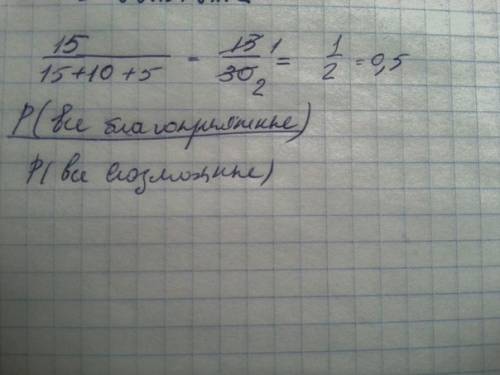 15/(15+10+5) = 15/30 1/2 = 1/2 = 0,5
P(все благоприятные)
P(все возможные)